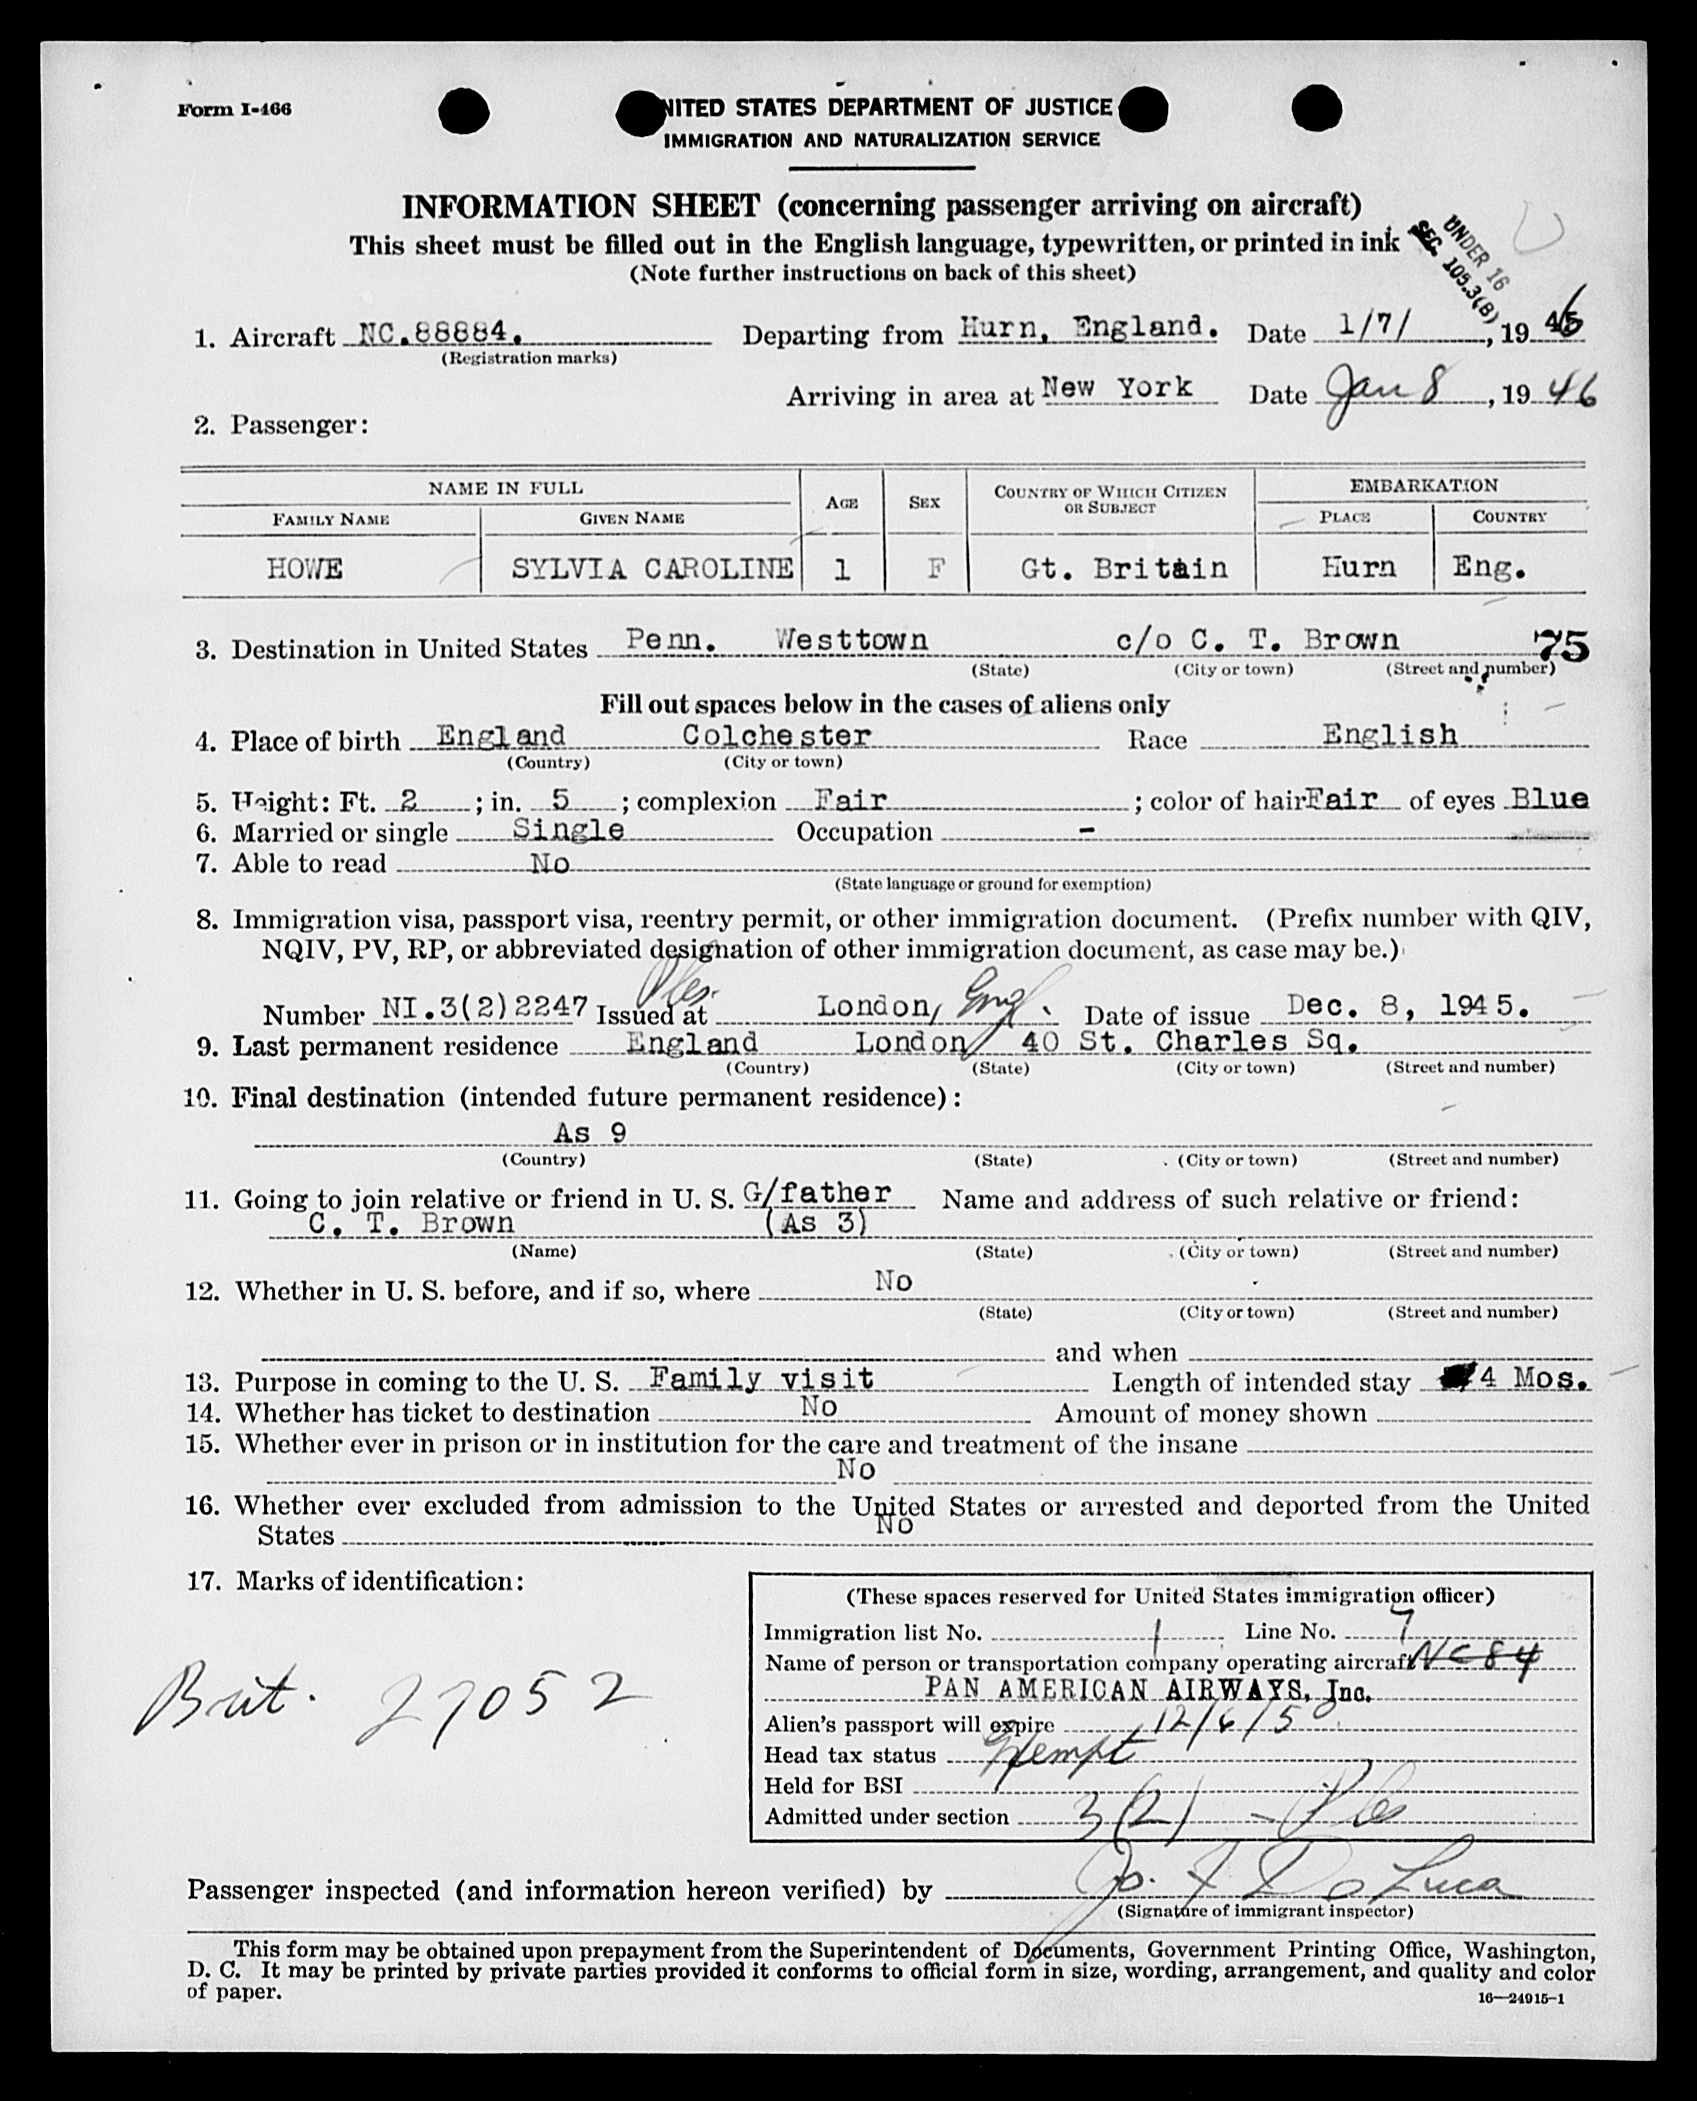 Form I-466
UNITED STATES DEPARTMENT OF JUSTICE
IMMIGRATION AND NATURALIZATION SERVICE
INFORMATION SHEET (concerning passenger arriving on aircraft)
This sheet must be filled out in the English language, typewritten, or printed in ink
(Note further instructions on back of this sheet)
UNDER 16
SEC. 105.3(B)
1. Aircraft NC.88884. Departing from Hurn, England. Date 1/7/, 1946
(Registration marks)
Arriving in area at New York Date Jan 8, 1946
2. Passenger:
NAME IN FULL AGE SEX COUNTRY OF WHICH CITIZEN OR SUBJECT EMBARKATION
FAMILY NAME GIVEN NAME PLACE COUNTRY
HOWE SYLVIA CAROLINE 1 F Gt. Britain Hurn Eng.
3. Destination in United States Penn. Westtown c/o C. T. Brown 75
(State) (City or town) (Street and number)
Fill out spaces below in the cases of aliens only
4. Place of birth England Colchester Race English
(Country) (City or town)
5. Height: Ft. 2; in. 5; complexion Fair; color of hair Fair of eyes Blue
6. Married or single Single Occupation -
7. Able to read No
(State language or ground for exemption)
8. Immigration visa, passport visa, reentry permit, or other immigration document. (Prefix number with QIV,
NQIV, PV, RP, or abbreviated designation of other immigration document, as case may be.)
Number NI.3(2)2247 Issued at London, Eng. Date of issue Dec. 8, 1945.
9. Last permanent residence England London/ 40 St. Charles Sq.
(Country) (State) (City or town) (Street and number)
10. Final destination (intended future permanent residence):
As 9
(Country) (State) (City or town) (Street and number)
11. Going to join relative or friend in U. S. G/father Name and address of such relative or friend:
C. T. Brown (As 3)
(Name) (State) (City or town) (Street and number)
12. Whether in U. S. before, and if so, where No
(State) (City or town) (Street and number)
and when
13. Purpose in coming to the U. S. Family visit Length of intended stay 4 Mos.
14. Whether has ticket to destination No Amount of money shown
15. Whether ever in prison or in institution for the care and treatment of the insane
No
16. Whether ever excluded from admission to the United States or arrested and deported from the United
States No
17. Marks of identification:
Brit. 27052
(These spaces reserved for United States immigration officer)
Immigration list No. 1 Line No. 7
Name of person or transportation company operating aircraft NC 84
PAN AMERICAN AIRWAYS, Inc.
Alien's passport will expire 12/6/50
Head tax status Exempt
Held for BSI
Admitted under section 3(2) -
Passenger inspected (and information hereon verified) by Jo. F. De Luca
(Signature of immigrant inspector)
This form may be obtained upon prepayment from the Superintendent of Documents, Government Printing Office, Washington,
D. C. It may be printed by private parties provided it conforms to official form in size, wording, arrangement, and quality and color
of paper.
16—24915-1